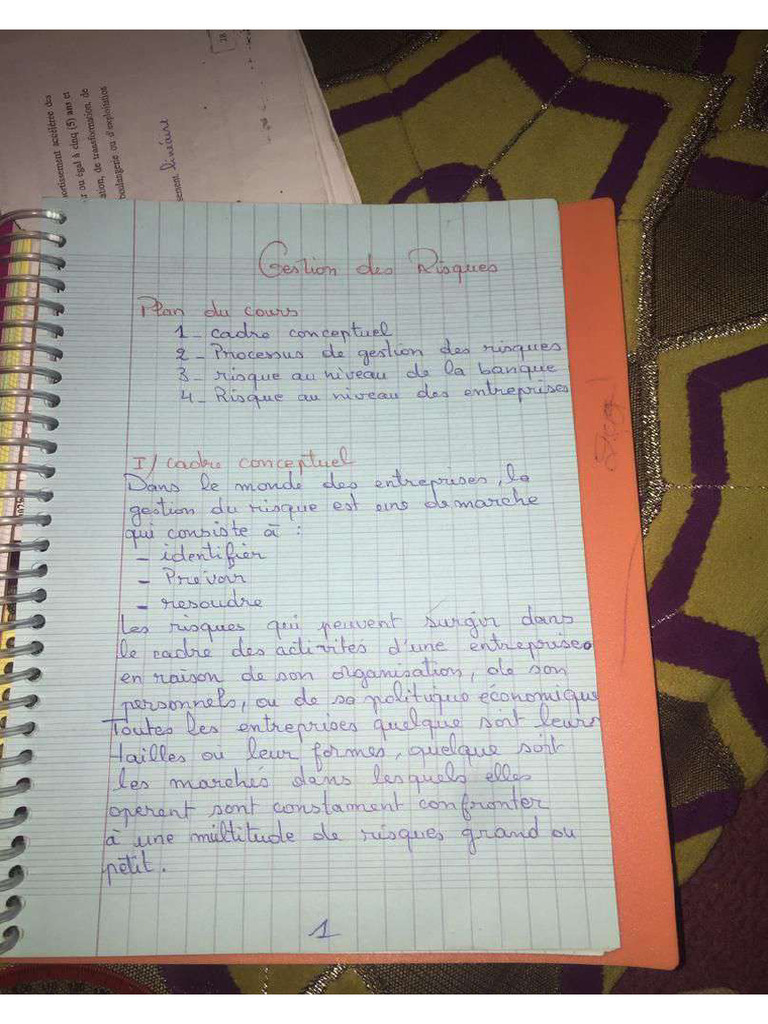 18
ortissement accéléré des
r ou égal à cinq (5) ans et
ation, de transformation, de
boulangerie ou d'exploitation
sement linéaire
Gestion des Risques
Plan du cours
1 - cadre conceptuel
2 - Processus de gestion des risques
3 - risque au niveau de la banque
4 - Risque au niveau des entreprises
I/ cadre conceptuel
Dans le monde des entreprises, la
gestion du risque est une demarche
qui consiste à :
- identifier
- Prevoir
- resoudre
Les risques qui peuvent surgir dans
le cadre des activités d'une entreprise
en raison de son organisation, de son
personnels, ou de sa politique économique
Toutes les entreprises quelque soit leurs
tailles ou leur formes, quelque soit
les marchés dans lesquels elles
operent sont constament confronter
à une multitude de risques grand ou
petit.
1